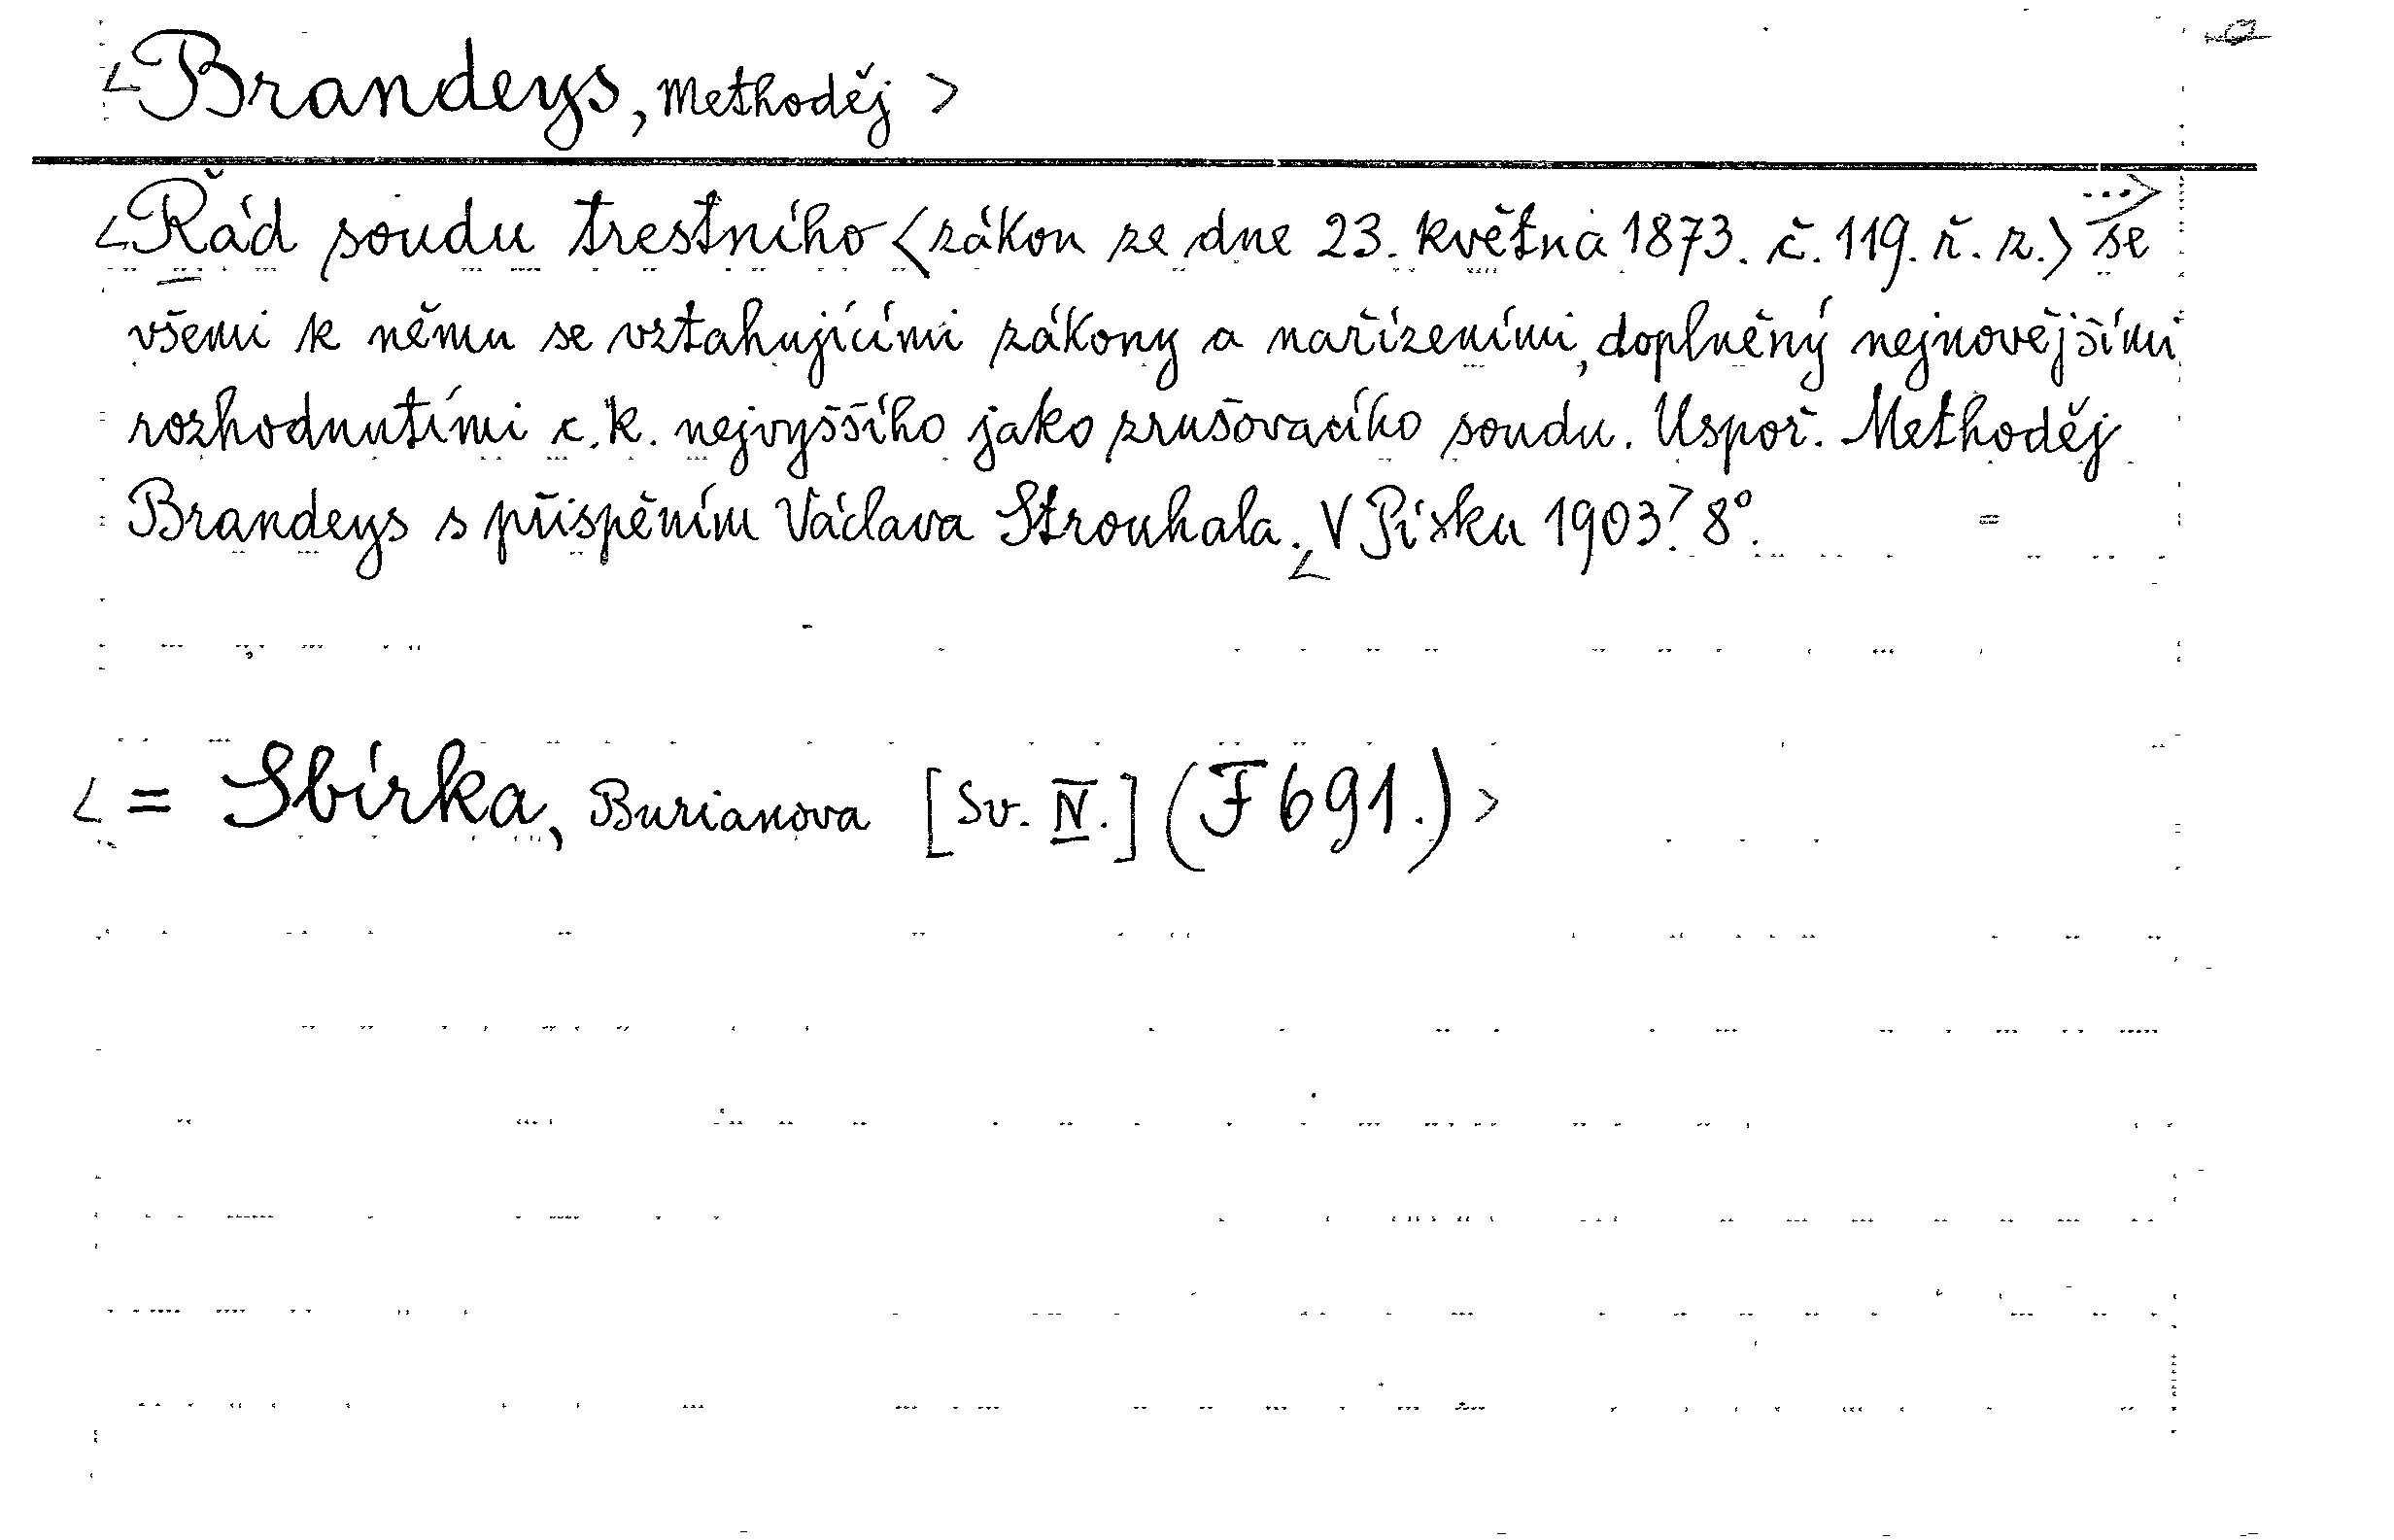 <Brandeys, Methoděj>
<Řád soudu trestního <zákon ze dne 23. května 1873. č. 119. ř. z.> ...> se
všemi k němu se vztahujícími zákony a nařízeními, doplněný nejnovějšími
rozhodnutími c. k. nejvyššího jako zrušovacího soudu. Uspoř. Methoděj
Brandeys s přispěním Václava Strouhala. <V Písku 1903.> 8°. =
< = Sbírka, Burianova [Sv. IV.] (F 691.) >